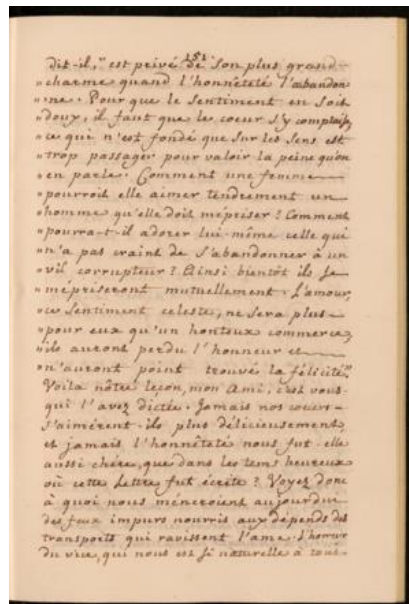 151
dit-il, "est privé de son plus grand
"charme quand l'honnêteté l'abandon
"ne. Pour que le sentiment en soit
"doux, il faut que le coeur s'y complaise,
"ce qui n'est fondé que sur les sens est
"trop passager pour valoir la peine qu'on
"en parle. Comment une femme
"pourroit elle aimer tendrement un
"homme qu'elle doit mépriser? Comment
"pourra-t-il adorer lui-même celle qui
"n'a pas craint de s'abandonner à un
"vil corrupteur? Ainsi bientôt ils se
"mépriseront mutuellement. L'amour,
"ce sentiment celeste, ne sera plus
"pour eux qu'un honteux commerce,
"ils auront perdu l'honneur et
"n'auront point trouvé la félicité."
Voila nôtre leçon, mon Ami, c'est vous
qui l'avez dictée. Jamais nos coeurs
s'aimérent-ils plus délicieusement,
et jamais l'honnêteté nous fut-elle
aussi chére, que dans les tems heureux
où cette Lettre fut écrite? Voyez donc
à quoi nous méneroient aujourdui
des feux impurs nourris aux dépends des
transports qui ravissent l'ame. L'horreur
du vice, qui nous est si naturelle à tous